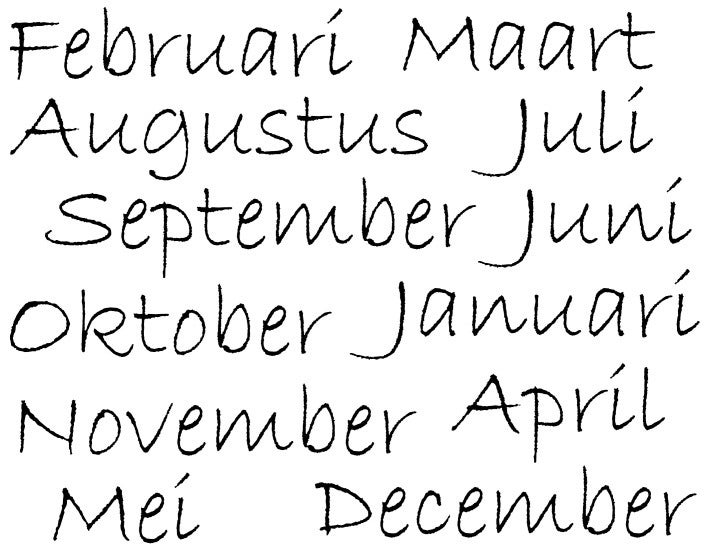 Februari Maart
Augustus Juli
September Juni
Oktober Januari
November April
Mei December